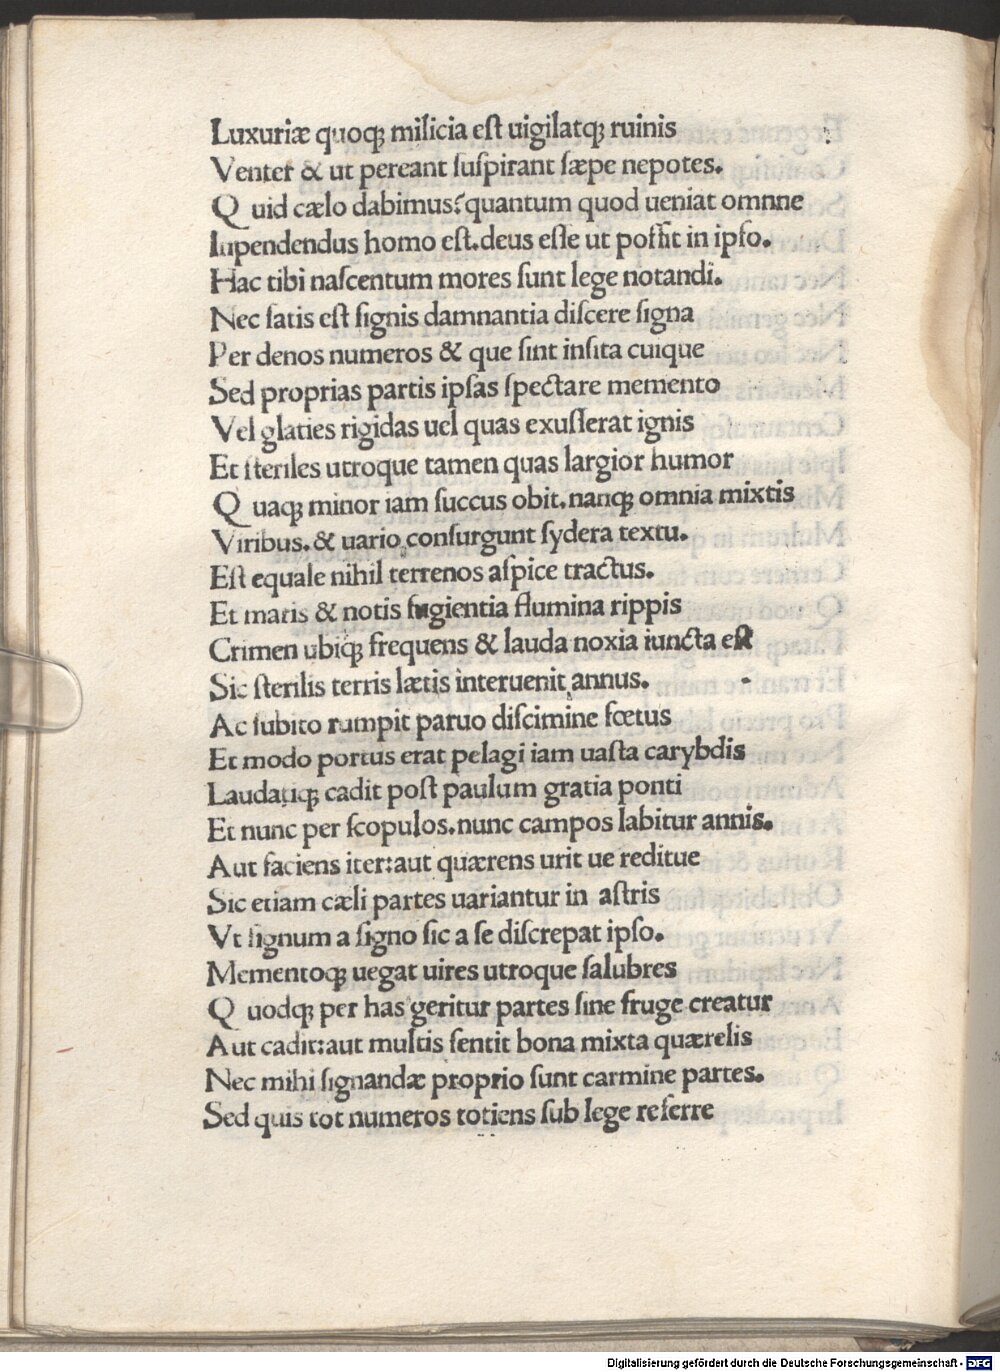 Luxuriæ quoqꝫ milicia eſt uigilatqꝫ ruinis
Venter & ut pereant ſuſpirant ſæpe nepotes.
Q uid cælo dabimus? quantum quod ueniat omnne
Inpendendus homo eſt. deus eſſe ut poſſit in ipſo.
Hac tibi naſcentum mores ſunt lege notandi.
Nec ſatis eſt ſignis damnantia diſcere ſigna
Per denos numeros & que ſint inſita cuique
Sed proprias partis ipſas ſpectare memento
Vel glaties rigidas uel quas exuſſerat ignis
Et ſteriles utroque tamen quas largior humor
Q uaqꝫ minor iam ſuccus obit. nanqꝫ omnia mixtis
Viribus. & uario conſurgunt ſydera textu.
Eſt equale nihil terrenos aſpice tractus.
Et maris & notis fugientia flumina rippis
Crimen ubiqꝫ frequens & lauda noxia iuncta eſt
Sic ſterilis terris lætis interuenit annus.
Ac ſubito rumpit paruo diſcimine fœtus
Et modo portus erat pelagi iam uaſta carybdis
Laudatiqꝫ cadit poſt paulum gratia ponti
Et nunc per ſcopulos. nunc campos labitur annis.
Aut faciens iter: aut quærens urit ue reditue
Sic etiam cæli partes uariantur in aſtris
Vt ſignum a ſigno ſic a ſe diſcrepat ipſo.
Mementoqꝫ uegat uires utroque ſalubres
Q uodqꝫ per has geritur partes ſine fruge creatur
Aut cadit: aut multis ſentit bona mixta quærelis
Nec mihi ſignandæ proprio ſunt carmine partes.
Sed quis tot numeros totiens ſub lege referre
Digitalisierung gefördert durch die Deutsche Forschungsgemeinschaft - DFG